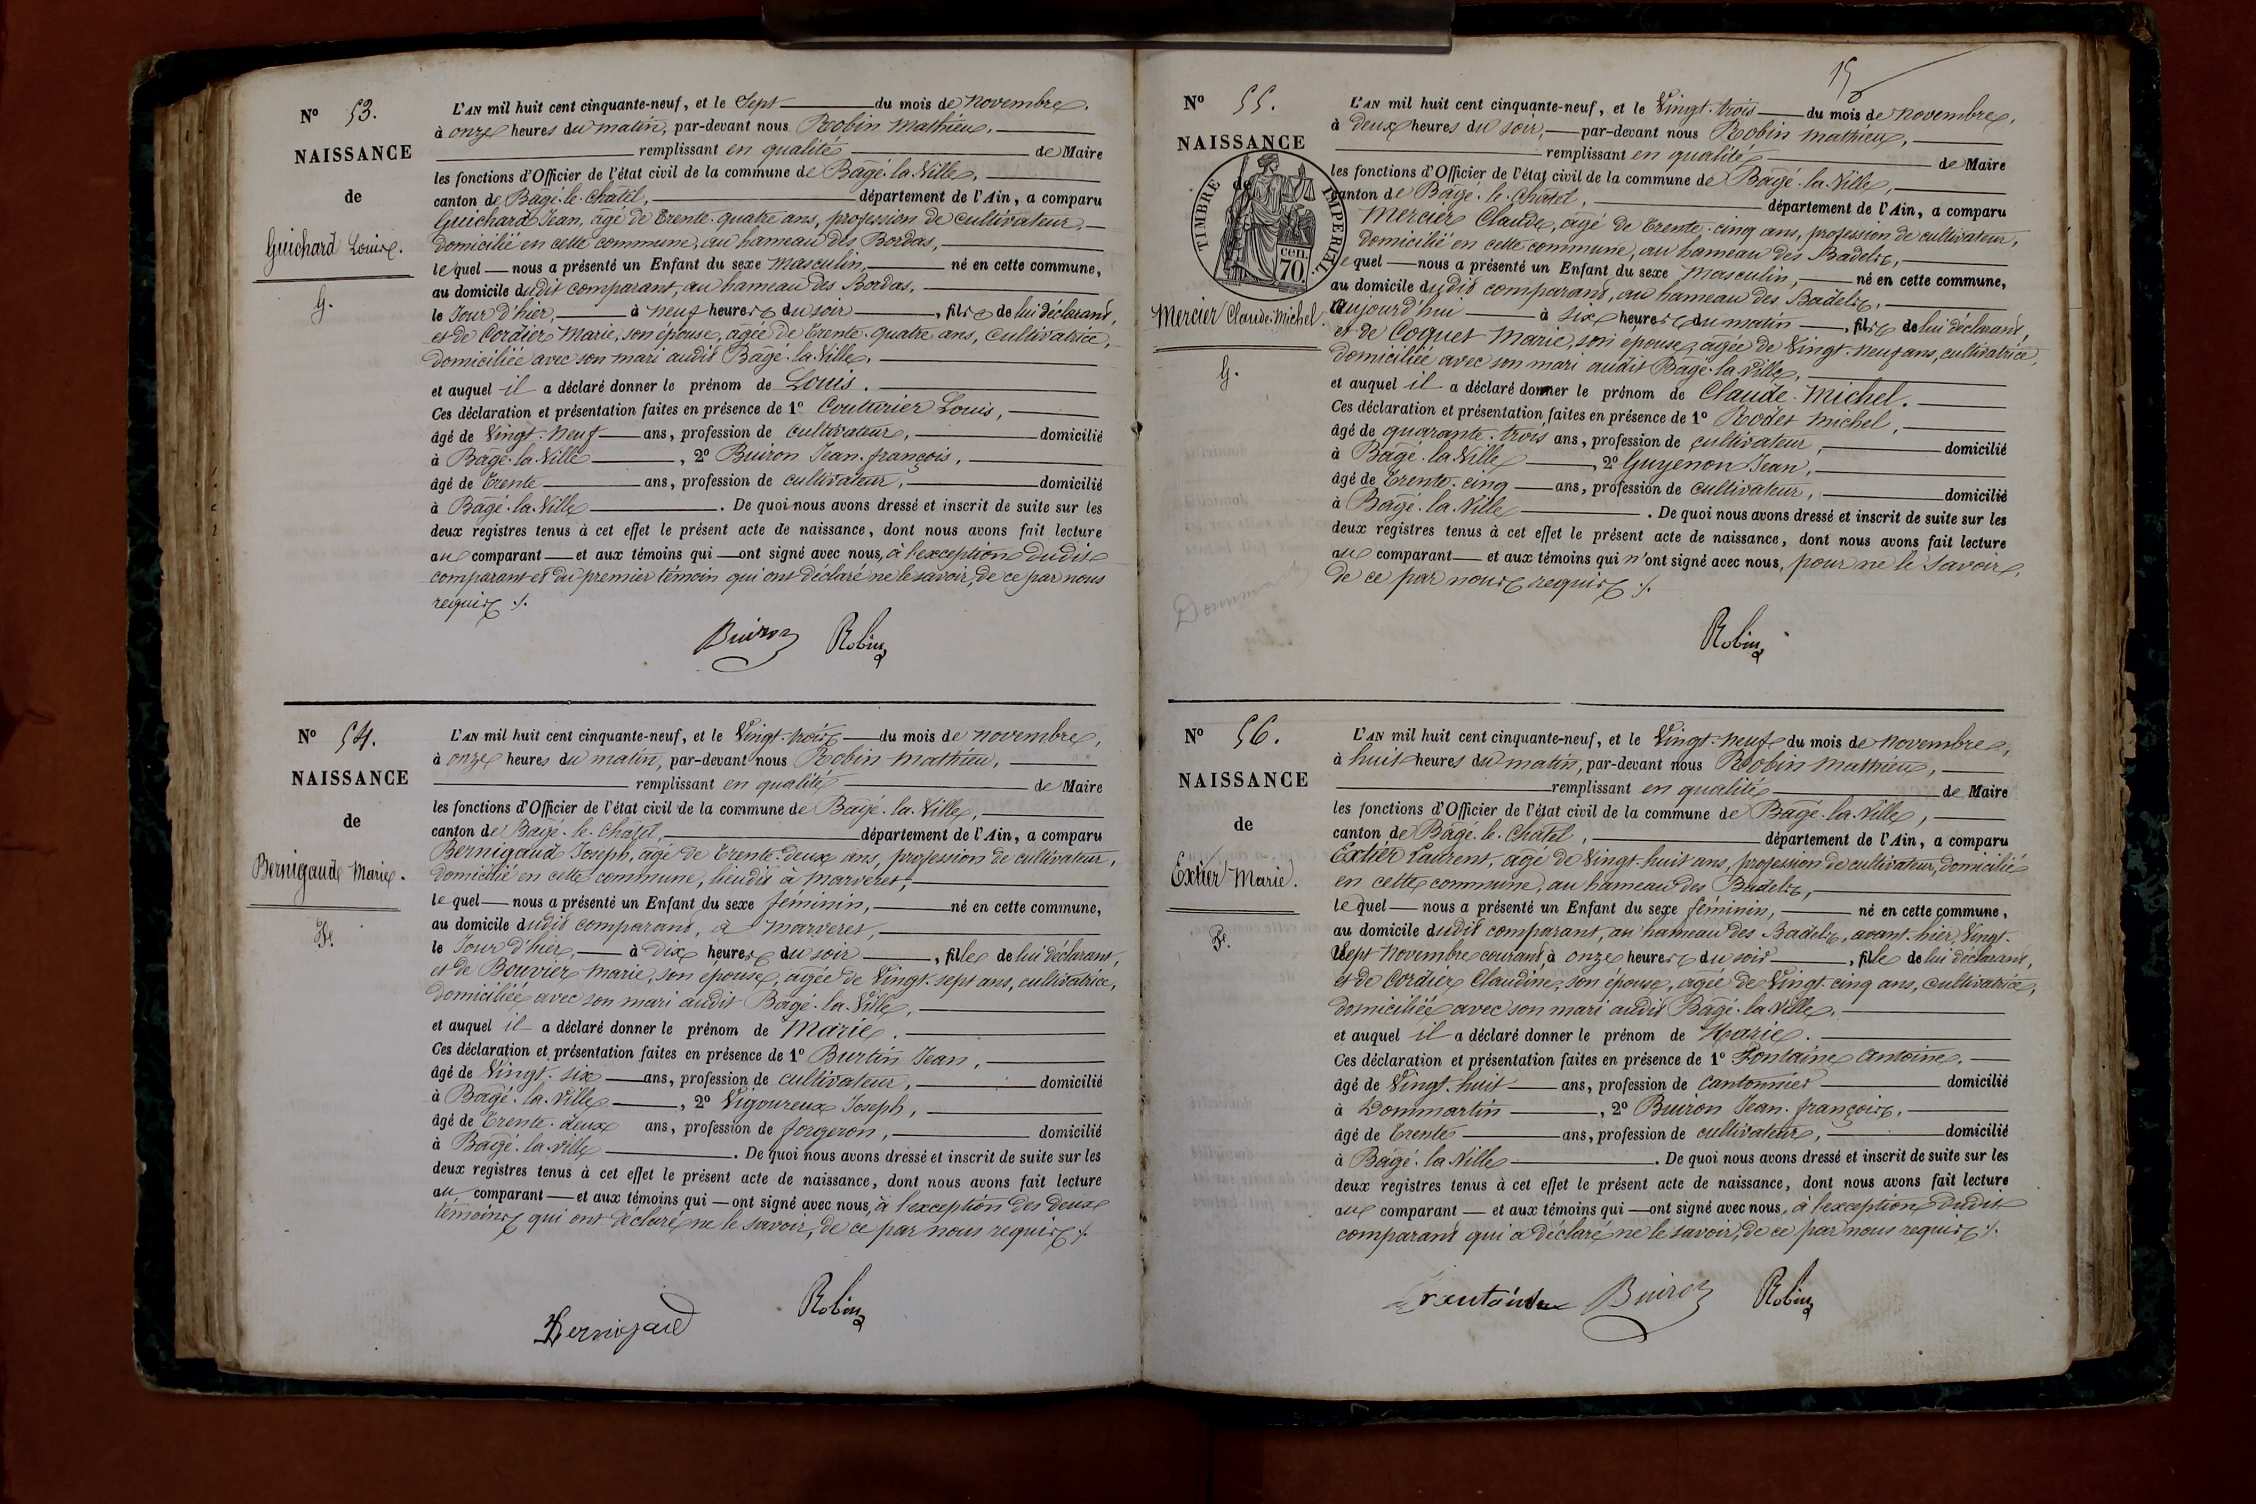 Nº 53.
NAISSANCE
de
Guichard Louis.
G.
L'AN mil huit cent cinquante-neuf, et le Sept du mois de novembre,
à onze heures du matin, par-devant nous Robin Mathieu,
remplissant en qualité de Maire
les fonctions d'Officier de l'état civil de la commune de Bâgé-la-Ville,
canton de Bâgé-le-Châtel, département de l'Ain, a comparu
Guichard Jean, âgé de trente-quatre ans, profession de cultivateur,
domicilié en cette commune, au hameau des Bordas,
lequel nous a présenté un Enfant du sexe masculin, né en cette commune,
au domicile dudit comparant, au hameau des Bordas,
le Jour d'hier, à neuf heures du soir, fils de lui déclarant,
et de Cordier Marie, son épouse, âgée de trente-quatre ans, cultivatrice,
domiciliée avec son mari audit Bâgé-la-Ville,
et auquel il a déclaré donner le prénom de Louis.
Ces déclaration et présentation faites en présence de 1º Couturier Louis,
âgé de vingt-neuf ans, profession de cultivateur, domicilié
à Bâgé-la-Ville, 2º Buiron Jean-françois,
âgé de trente ans, profession de cultivateur, domicilié
à Bâgé-la-Ville. De quoi nous avons dressé et inscrit de suite sur les
deux registres tenus à cet effet le présent acte de naissance, dont nous avons fait lecture
au comparant et aux témoins qui ont signé avec nous, à l'exception dudit
comparant et du premier témoin qui ont déclaré ne le savoir, de ce par nous
requis ./.
Buiron Robin
Nº 54.
NAISSANCE
de
Bernigaud Marie.
F.
L'AN mil huit cent cinquante-neuf, et le Vingt-trois du mois de novembre,
à onze heures du matin, par-devant nous Robin Mathieu,
remplissant en qualité de Maire
les fonctions d'Officier de l'état civil de la commune de Bâgé-la-Ville,
canton de Bâgé-le-Châtel, département de l'Ain, a comparu
Bernigaud Joseph, âgé de trente-deux ans, profession de cultivateur,
domicilié en cette commune, lieudit à Marveret,
lequel nous a présenté un Enfant du sexe féminin, né en cette commune,
au domicile dudit comparant, à Marveret,
le Jour d'hier, à dix heures du soir, fille de lui déclarant,
et de Bouvier Marie, son épouse, âgée de vingt-sept ans, cultivatrice,
domiciliée avec son mari audit Bâgé-la-Ville,
et auquel il a déclaré donner le prénom de Marie.
Ces déclaration et présentation faites en présence de 1º Burtin Jean,
âgé de vingt-six ans, profession de cultivateur, domicilié
à Bâgé-la-Ville, 2º Vigoureux Joseph,
âgé de trente-deux ans, profession de forgeron, domicilié
à Bâgé-la-Ville. De quoi nous avons dressé et inscrit de suite sur les
deux registres tenus à cet effet le présent acte de naissance, dont nous avons fait lecture
au comparant et aux témoins qui ont signé avec nous, à l'exception des deux
témoins qui ont déclaré ne le savoir, de ce par nous requis ./.
Bernigaud Robin
15
Nº 55.
NAISSANCE
de
TIMBRE IMPERIAL.
70 cen.
Mercier Claude-Michel.
G.
L'AN mil huit cent cinquante-neuf, et le Vingt-trois du mois de novembre,
à deux heures du soir, par-devant nous Robin Mathieu,
remplissant en qualité de Maire
les fonctions d'Officier de l'état civil de la commune de Bâgé-la-Ville,
canton de Bâgé-le-Châtel, département de l'Ain, a comparu
Mercier Claude, âgé de trente-cinq ans, profession de cultivateur,
domicilié en cette commune, au hameau des Badels,
lequel nous a présenté un Enfant du sexe masculin, né en cette commune,
au domicile dudit comparant, au hameau des Badels,
aujourd'hui à six heures du matin, fils de lui déclarant,
et de Coquet Marie, son épouse, âgée de vingt-neuf ans, cultivatrice,
domiciliée avec son mari audit Bâgé-la-Ville,
et auquel il a déclaré donner le prénom de Claude-Michel.
Ces déclaration et présentation faites en présence de 1º Rodet Michel,
âgé de quarante-trois ans, profession de cultivateur, domicilié
à Bâgé-la-Ville, 2º Guyenon Jean,
âgé de trente-cinq ans, profession de cultivateur, domicilié
à Bâgé-la-Ville. De quoi nous avons dressé et inscrit de suite sur les
deux registres tenus à cet effet le présent acte de naissance, dont nous avons fait lecture
au comparant et aux témoins qui n'ont signé avec nous, pour ne le savoir,
de ce par nous requis ./.
Robin
Nº 56.
NAISSANCE
de
Extier Marie.
F.
L'AN mil huit cent cinquante-neuf, et le Vingt-neuf du mois de novembre,
à huit heures du matin, par-devant nous Robin Mathieu,
remplissant en qualité de Maire
les fonctions d'Officier de l'état civil de la commune de Bâgé-la-Ville,
canton de Bâgé-le-Châtel, département de l'Ain, a comparu
Extier Laurent, âgé de vingt-huit ans, profession de cultivateur, domicilié
en cette commune, au hameau des Badels,
lequel nous a présenté un Enfant du sexe féminin, né en cette commune,
au domicile dudit comparant, au hameau des Badels, avant-hier, vingt-
sept novembre courant, à onze heures du soir, fille de lui déclarant,
et de Cordier Claudine, son épouse, âgée de vingt-cinq ans, cultivatrice,
domiciliée avec son mari audit Bâgé-la-Ville,
et auquel il a déclaré donner le prénom de Marie.
Ces déclaration et présentation faites en présence de 1º Fontaine Antoine,
âgé de vingt-huit ans, profession de cantonnier domicilié
à Dommartin, 2º Buiron Jean-françois,
âgé de trente ans, profession de cultivateur, domicilié
à Bâgé-la-Ville. De quoi nous avons dressé et inscrit de suite sur les
deux registres tenus à cet effet le présent acte de naissance, dont nous avons fait lecture
au comparant et aux témoins qui ont signé avec nous, à l'exception dudit
comparant qui a déclaré ne le savoir, de ce par nous requis ./.
Buiron Robin